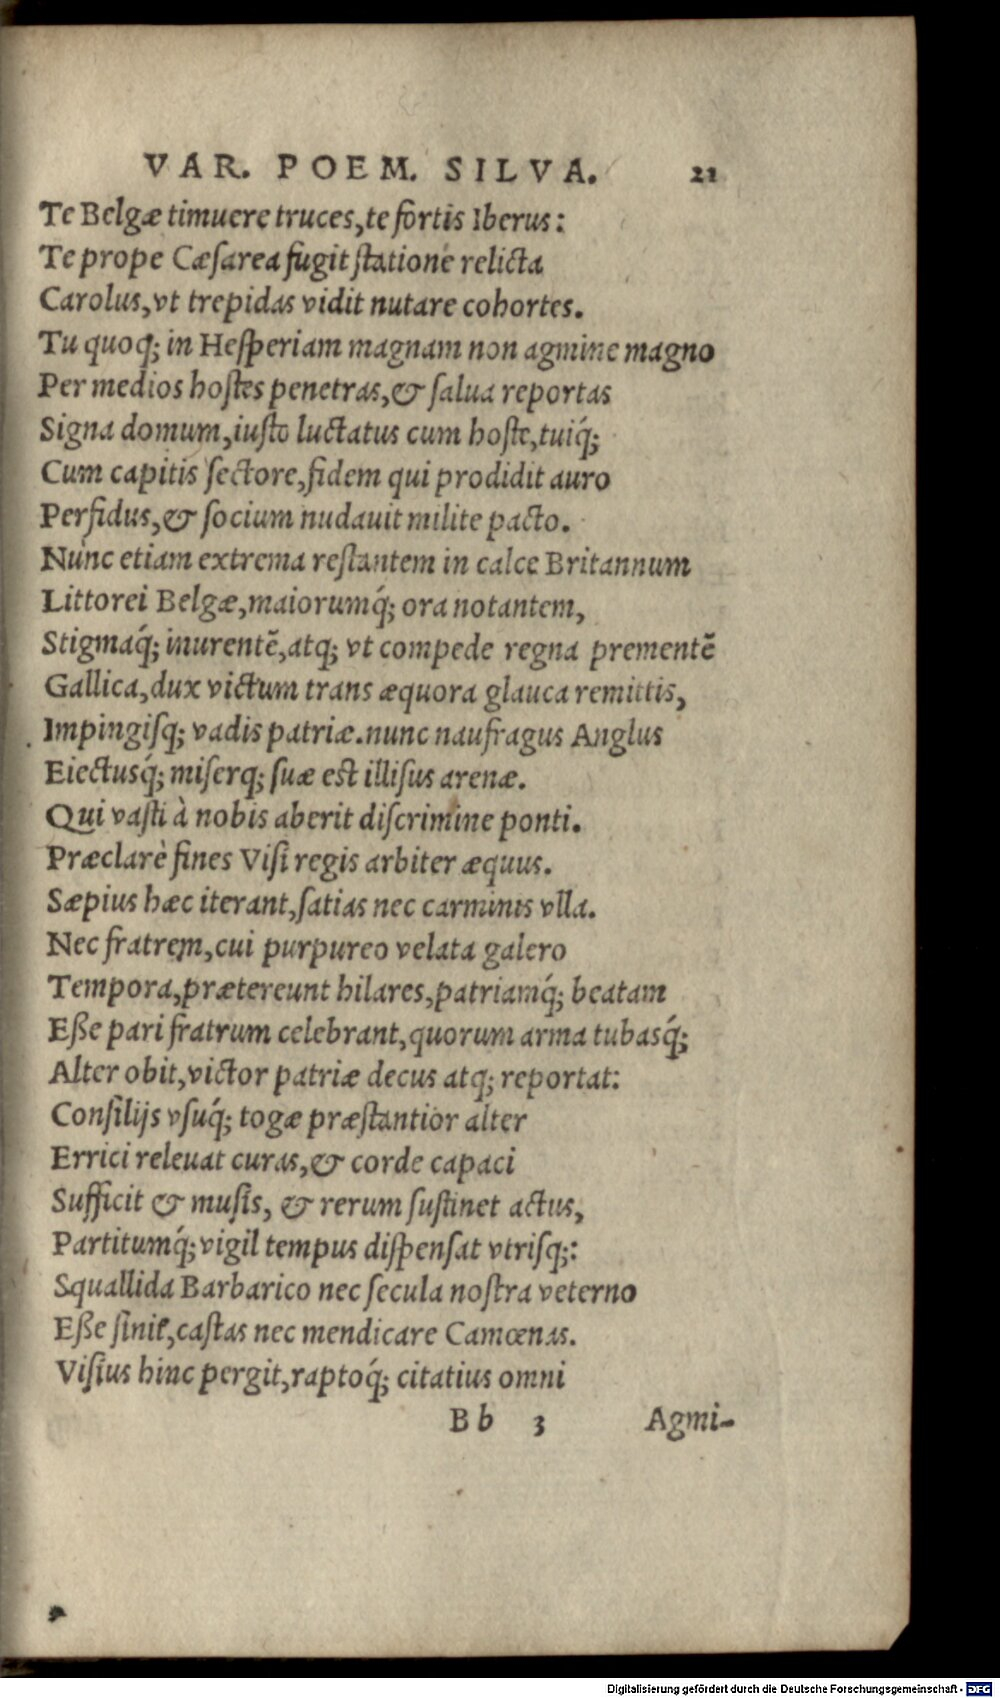 VAR. POEM. SILVA. 21
Te Belgæ timuere truces, te fortis Iberus:
Te prope Cæſarea fugit ſtatione relicta
Carolus, vt trepidas vidit nutare cohortes.
Tu quoq; in Heſperiam magnam non agmine magno
Per medios hoſtes penetras, & ſalua reportas
Signa domum, iuſto luctatus cum hoſte, tuiq́;
Cum capitis ſectore, fidem qui prodidit auro
Perfidus, & ſocium nudauit milite pacto.
Nunc etiam extrema reſtantem in calce Britannum
Littorei Belgæ, maiorumq́; ora notantem,
Stigmaq́; inurentē, atq; vt compede regna prementē
Gallica, dux victum trans æquora glauca remittis,
Impingiſq; vadis patriæ. nunc naufragus Anglus
Eiectusq́; miſerq; ſuæ est illiſus arenæ.
Qui vaſti à nobis aberit diſcrimine ponti.
Præclarè fines Viſi regis arbiter æquus.
Sæpius hæc iterant, ſatias nec carminis vlla.
Nec fratrem, cui purpureo velata galero
Tempora, prætereunt hilares, patriamq́; beatam
Eße pari fratrum celebrant, quorum arma tubasq́;
Alter obit, victor patriæ decus atq; reportat:
Conſilijs vſuq́; togæ præſtantior alter
Errici releuat curas, & corde capaci
Sufficit & muſis, & rerum ſuſtinet actus,
Partitumq́; vigil tempus diſpenſat vtriſq;:
Squallida Barbarico nec ſecula noſtra veterno
Eße ſinit, caſtas nec mendicare Camœnas.
Viſius hinc pergit, raptoq́; citatius omni
Bb 3 Agmi-
Digitalisierung gefördert durch die Deutsche Forschungsgemeinschaft - DFG